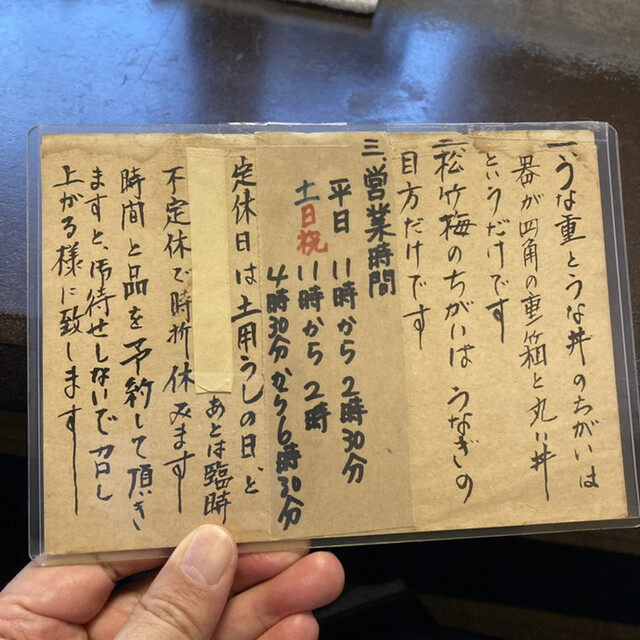 一、うな重とうな丼のちがいは
器が四角の重箱と丸い丼
というだけです
二、松竹梅のちがいは うなぎの
目方だけです
三、営業時間
平日 11時から2時30分
土日祝 11時から2時
4時30分から6時30分
定休日は土用うしの日、と
あとは臨時
不定休で時折休みます
時間と品を予約して頂き
ますと、お待せしないで召し
上がる様に致します